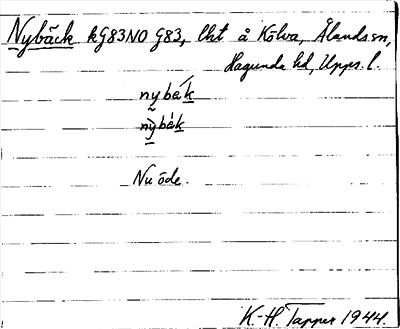 Nybäck kG83NO G83, lht å Kölva, Ålands sn,
Hagunda hd, Upps. l.
nybak
nybak
Nu öde.
K.-H. Tapper 1944.